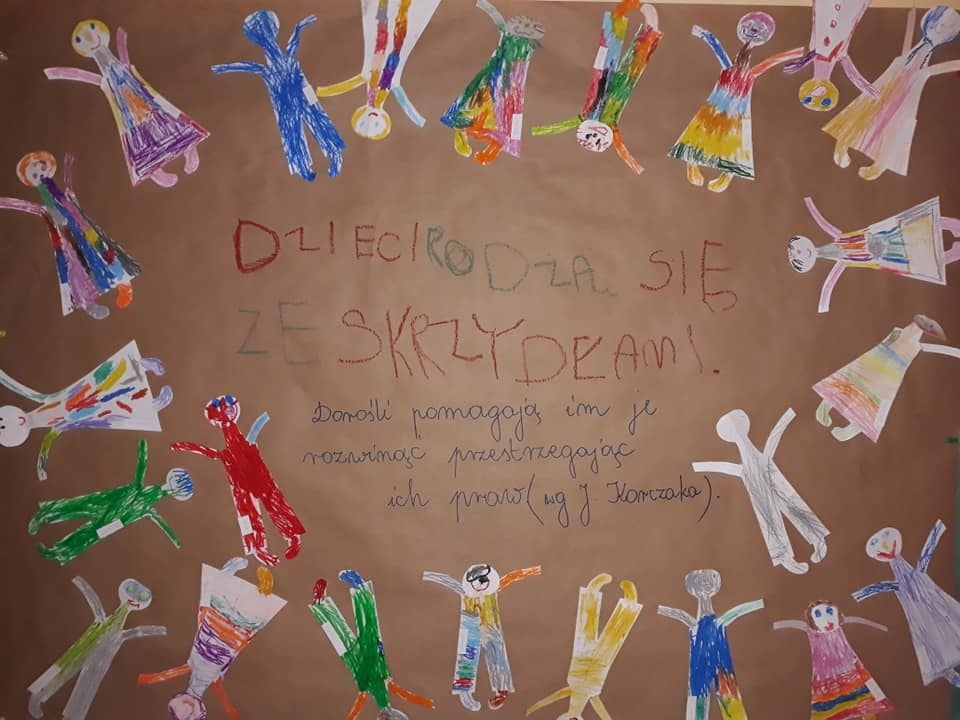 DZIECI RODZĄ SIĘ
ZE SKRZYDŁAMI.
Dorośli pomagają im je
rozwinąć przestrzegając
ich praw (wg J. Korczaka).